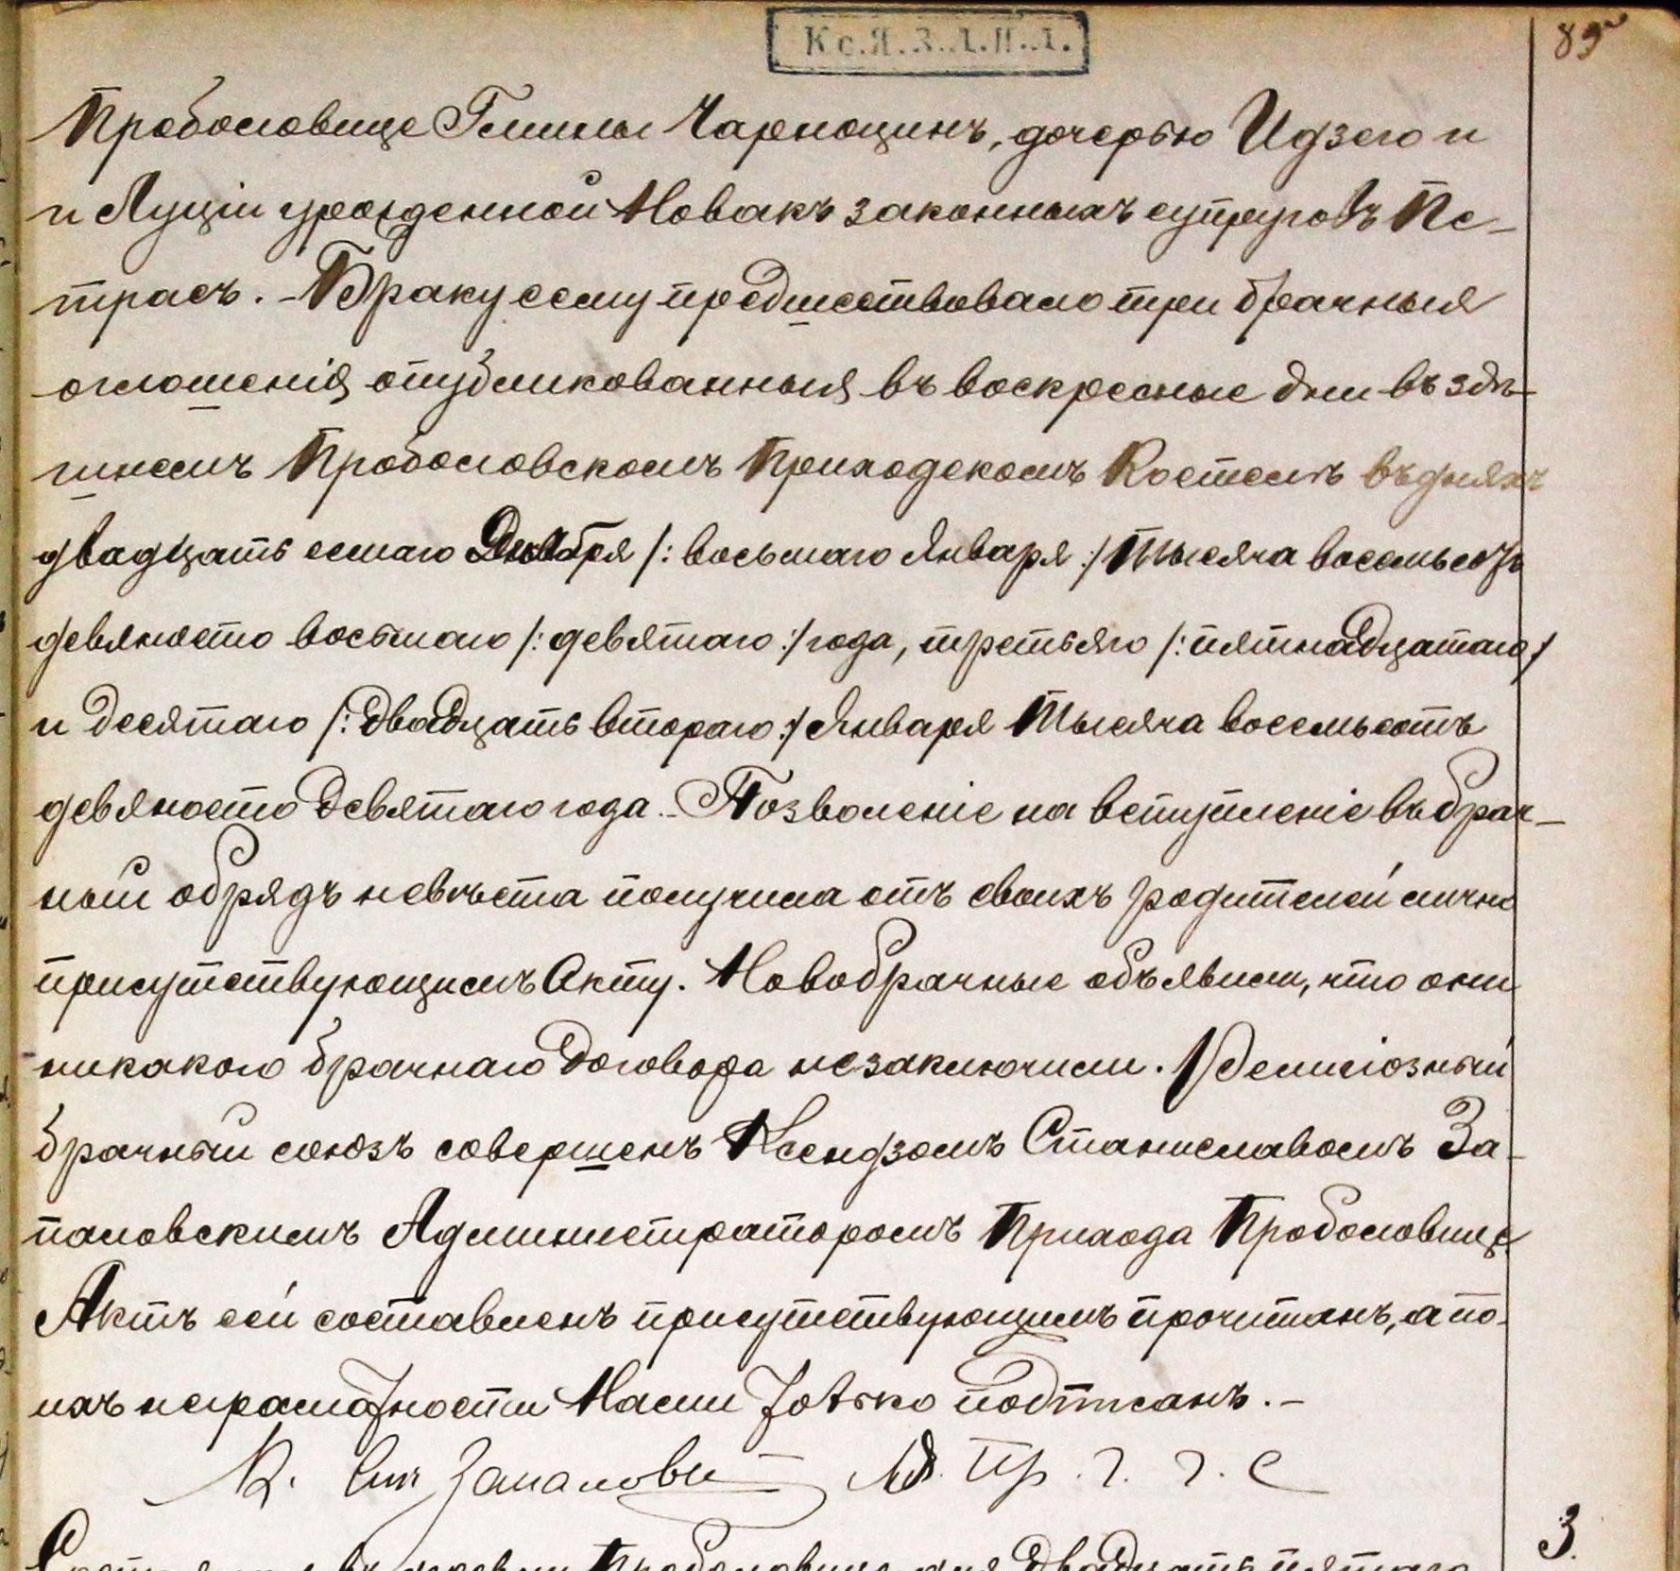 Кс.Я.З.А.П.Л.
89
Пробословице Гмины Чарноцинъ, дочерью Идзего и
и Луціи урожденной Новакъ законныхъ супруговъ Пе-
трасъ. - Браку сему предшествовало три брачныя
оглошенія опубликованныя въ воскресные дни въ здѣ-
шнемъ Пробословскомъ Приходскомъ Костелѣ въ дняхъ
двадцать семаго Декабря /: восьмаго Января :/ Тысяча восемьсотъ
девяносто восьмаго /: девятаго :/ года, третьяго /: пятнадцатаго /
и десятаго /: двадцать втораго :/ Января Тысяча восемьсотъ
девяносто девятаго года. - Позволеніе на вступленіе въ брач-
ный обрядъ невѣста получила отъ своихъ родителей лично
присутствующихъ Акту. Новобрачные объявили, что они
никакого брачнаго договора незаключили. Религіозный
брачный союзъ совершенъ Ксендзомъ Станиславомъ За-
паловскимъ Администраторомъ Прихода Пробословице
Актъ сей составленъ присутствующимъ прочитанъ, а по
ихъ неграмотности Нами только подписанъ. -
К. Запалови Ад. Пр. г. г. с
3.
въ Пробословице дня двадцать пятаго